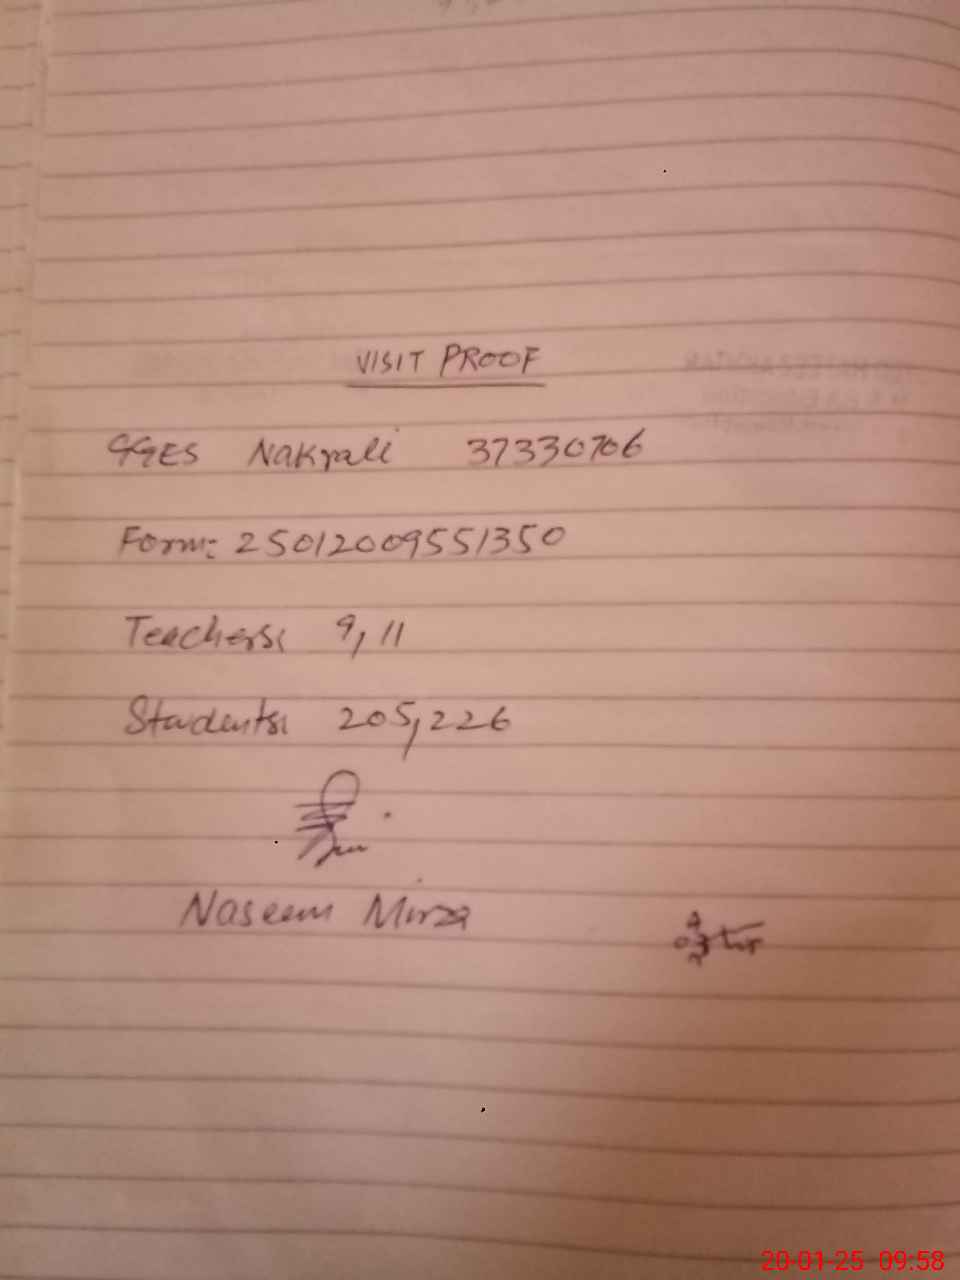 VISIT PROOF
GGES Nakrali 37330706
Form: 25012009551350
Teachers: 9, 11
Students: 205, 226
Naseem Mirza
20-01-25 09:58